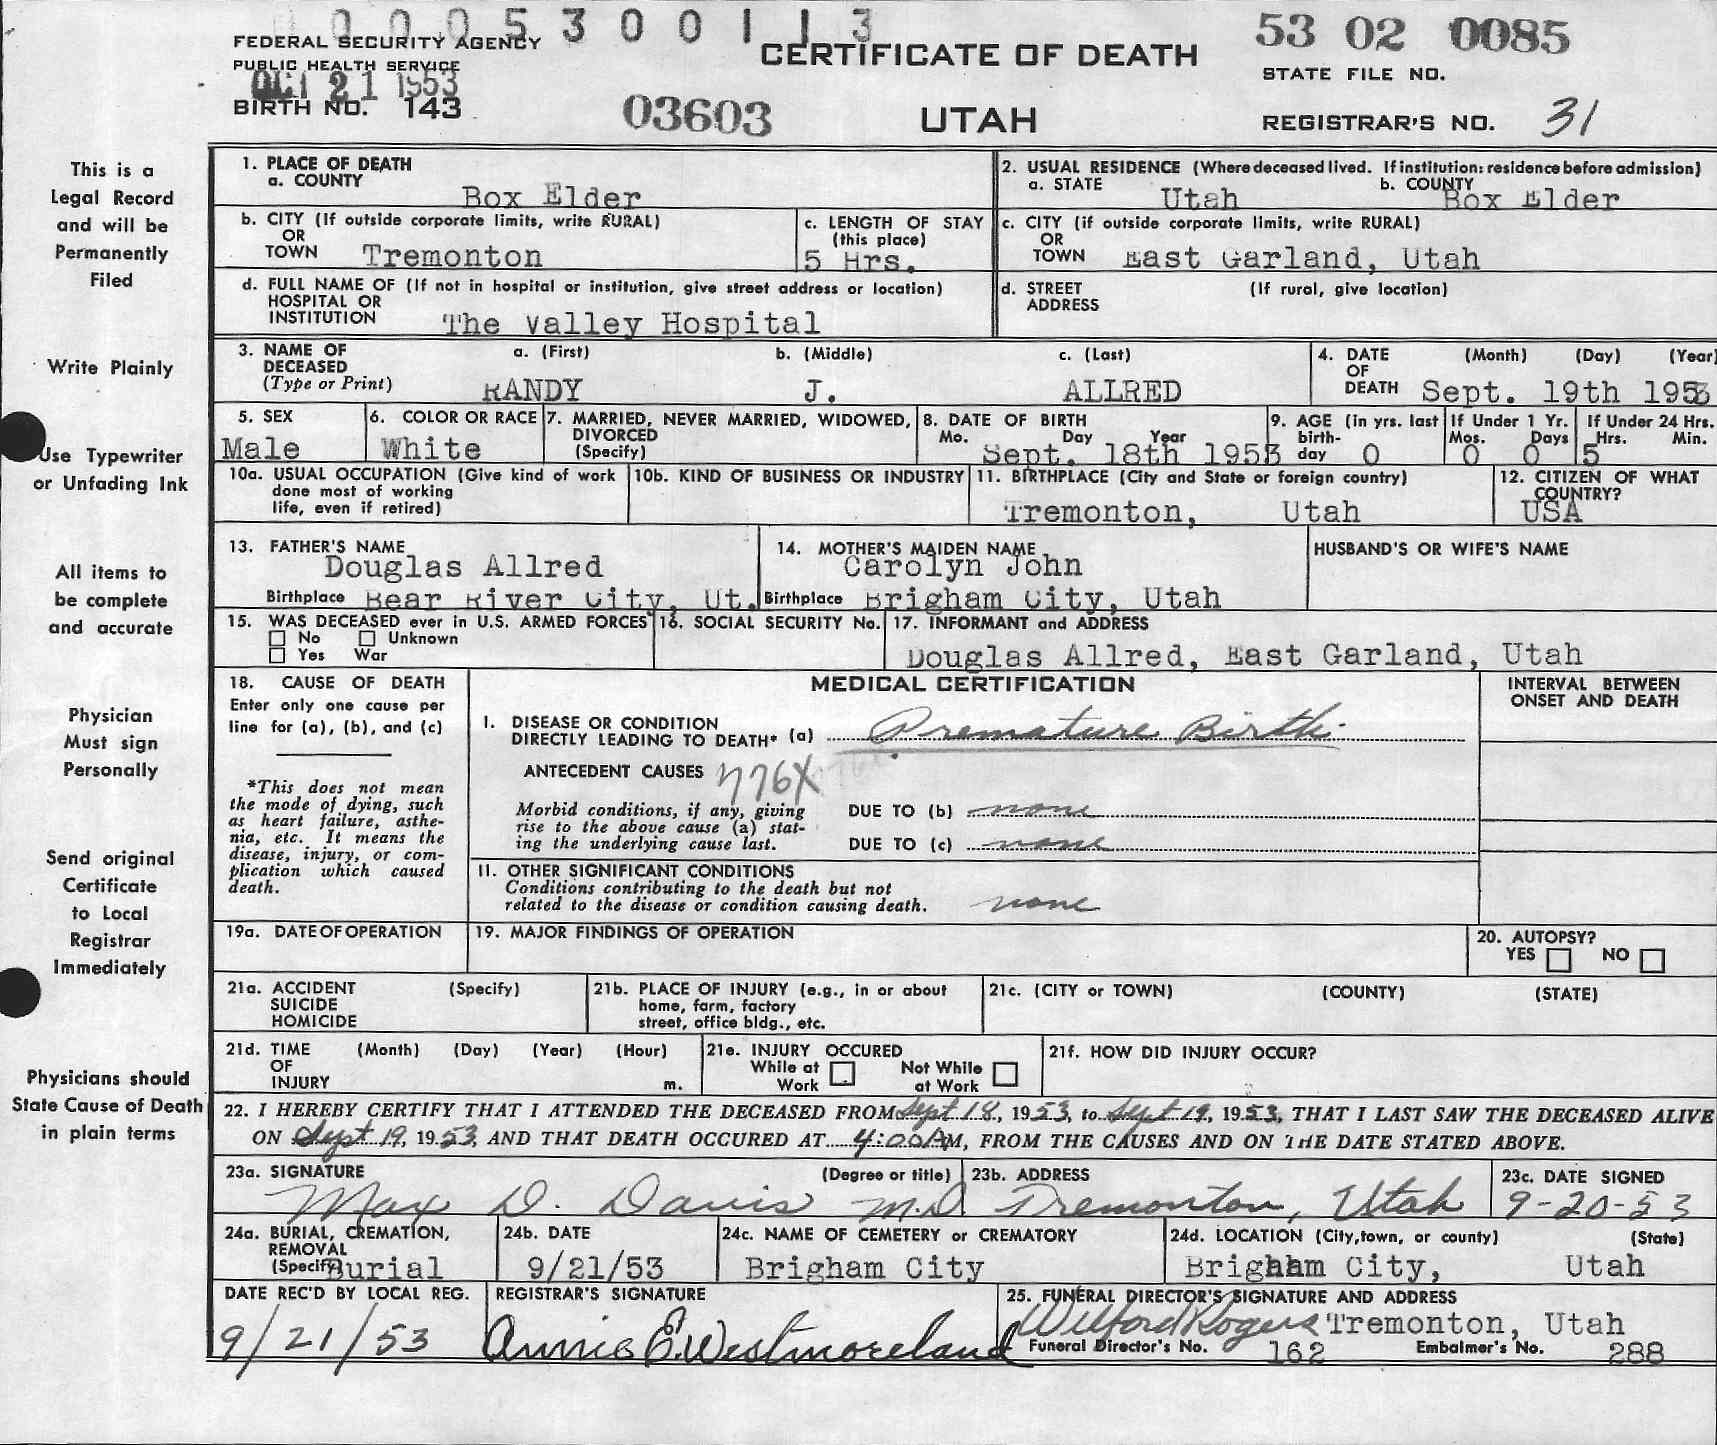 0 0 0 5 3 0 0 1 1 3
FEDERAL SECURITY AGENCY
PUBLIC HEALTH SERVICE
OCT 21 1953
BIRTH NO. 143
03603
CERTIFICATE OF DEATH
UTAH
53 02 0085
STATE FILE NO.
REGISTRAR'S NO. 31
This is a
Legal Record
and will be
Permanently
Filed
Write Plainly
Use Typewriter
or Unfading Ink
All items to
be complete
and accurate
Physician
Must sign
Personally
Send original
Certificate
to Local
Registrar
Immediately
Physicians should
State Cause of Death
in plain terms
1. PLACE OF DEATH
a. COUNTY Box Elder
2. USUAL RESIDENCE (Where deceased lived. If institution: residence before admission)
a. STATE Utah b. COUNTY Box Elder
b. CITY (If outside corporate limits, write RURAL)
OR
TOWN Tremonton
c. LENGTH OF STAY
(this place)
5 Hrs.
c. CITY (if outside corporate limits, write RURAL)
OR
TOWN East Garland, Utah
d. FULL NAME OF (If not in hospital or institution, give street address or location)
HOSPITAL OR
INSTITUTION The Valley Hospital
d. STREET (If rural, give location)
ADDRESS
3. NAME OF a. (First) b. (Middle) c. (Last)
DECEASED
(Type or Print) RANDY J. ALLRED
4. DATE (Month) (Day) (Year)
OF
DEATH Sept. 19th 1953
5. SEX
Male
6. COLOR OR RACE
White
7. MARRIED, NEVER MARRIED, WIDOWED,
DIVORCED
(Specify)
8. DATE OF BIRTH
Mo. Day Year
Sept. 18th 1953
9. AGE (in yrs. last
birth-
day 0
If Under 1 Yr.
Mos. Days
0 0
If Under 24 Hrs.
Hrs. Min.
5
10a. USUAL OCCUPATION (Give kind of work
done most of working
life, even if retired)
10b. KIND OF BUSINESS OR INDUSTRY
11. BIRTHPLACE (City and State or foreign country)
Tremonton, Utah
12. CITIZEN OF WHAT
COUNTRY?
USA
13. FATHER'S NAME
Douglas Allred
Birthplace Bear River City, Ut.
14. MOTHER'S MAIDEN NAME
Carolyn John
Birthplace Brigham City, Utah
HUSBAND'S OR WIFE'S NAME
15. WAS DECEASED ever in U.S. ARMED FORCES
No Unknown
Yes War
16. SOCIAL SECURITY No.
17. INFORMANT and ADDRESS
Douglas Allred, East Garland, Utah
18. CAUSE OF DEATH
Enter only one cause per
line for (a), (b), and (c)
*This does not mean
the mode of dying, such
as heart failure, asthe-
nia, etc. It means the
disease, injury, or com-
plication which caused
death.
MEDICAL CERTIFICATION
INTERVAL BETWEEN
ONSET AND DEATH
I. DISEASE OR CONDITION
DIRECTLY LEADING TO DEATH* (a) Premature Birth
ANTECEDENT CAUSES 776X
Morbid conditions, if any, giving
rise to the above cause (a) stat-
ing the underlying cause last.
DUE TO (b) none
DUE TO (c) none
II. OTHER SIGNIFICANT CONDITIONS
Conditions contributing to the death but not
related to the disease or condition causing death. none
19a. DATE OF OPERATION
19. MAJOR FINDINGS OF OPERATION
20. AUTOPSY?
YES NO
21a. ACCIDENT (Specify)
SUICIDE
HOMICIDE
21b. PLACE OF INJURY (e.g., in or about
home, farm, factory
street, office bldg., etc.
21c. (CITY or TOWN) (COUNTY) (STATE)
21d. TIME (Month) (Day) (Year) (Hour)
OF
INJURY m.
21e. INJURY OCCURED
While at Not While
Work at Work
21f. HOW DID INJURY OCCUR?
22. I HEREBY CERTIFY THAT I ATTENDED THE DECEASED FROM Sept 18, 1953, to Sept 19, 1953, THAT I LAST SAW THE DECEASED ALIVE
ON Sept 19, 1953, AND THAT DEATH OCCURED AT 4:00AM, FROM THE CAUSES AND ON THE DATE STATED ABOVE.
23a. SIGNATURE (Degree or title)
Max D. Davis M.D.
23b. ADDRESS
Tremonton, Utah
23c. DATE SIGNED
9-20-53
24a. BURIAL, CREMATION,
REMOVAL
(Specify) Burial
24b. DATE
9/21/53
24c. NAME OF CEMETERY or CREMATORY
Brigham City
24d. LOCATION (City, town, or county) (State)
Brigham City, Utah
DATE REC'D BY LOCAL REG.
9/21/53
REGISTRAR'S SIGNATURE
Annie E. Westmoreland
25. FUNERAL DIRECTOR'S SIGNATURE AND ADDRESS
Wilford Rogers Tremonton, Utah
Funeral Director's No. 162 Embalmer's No. 288